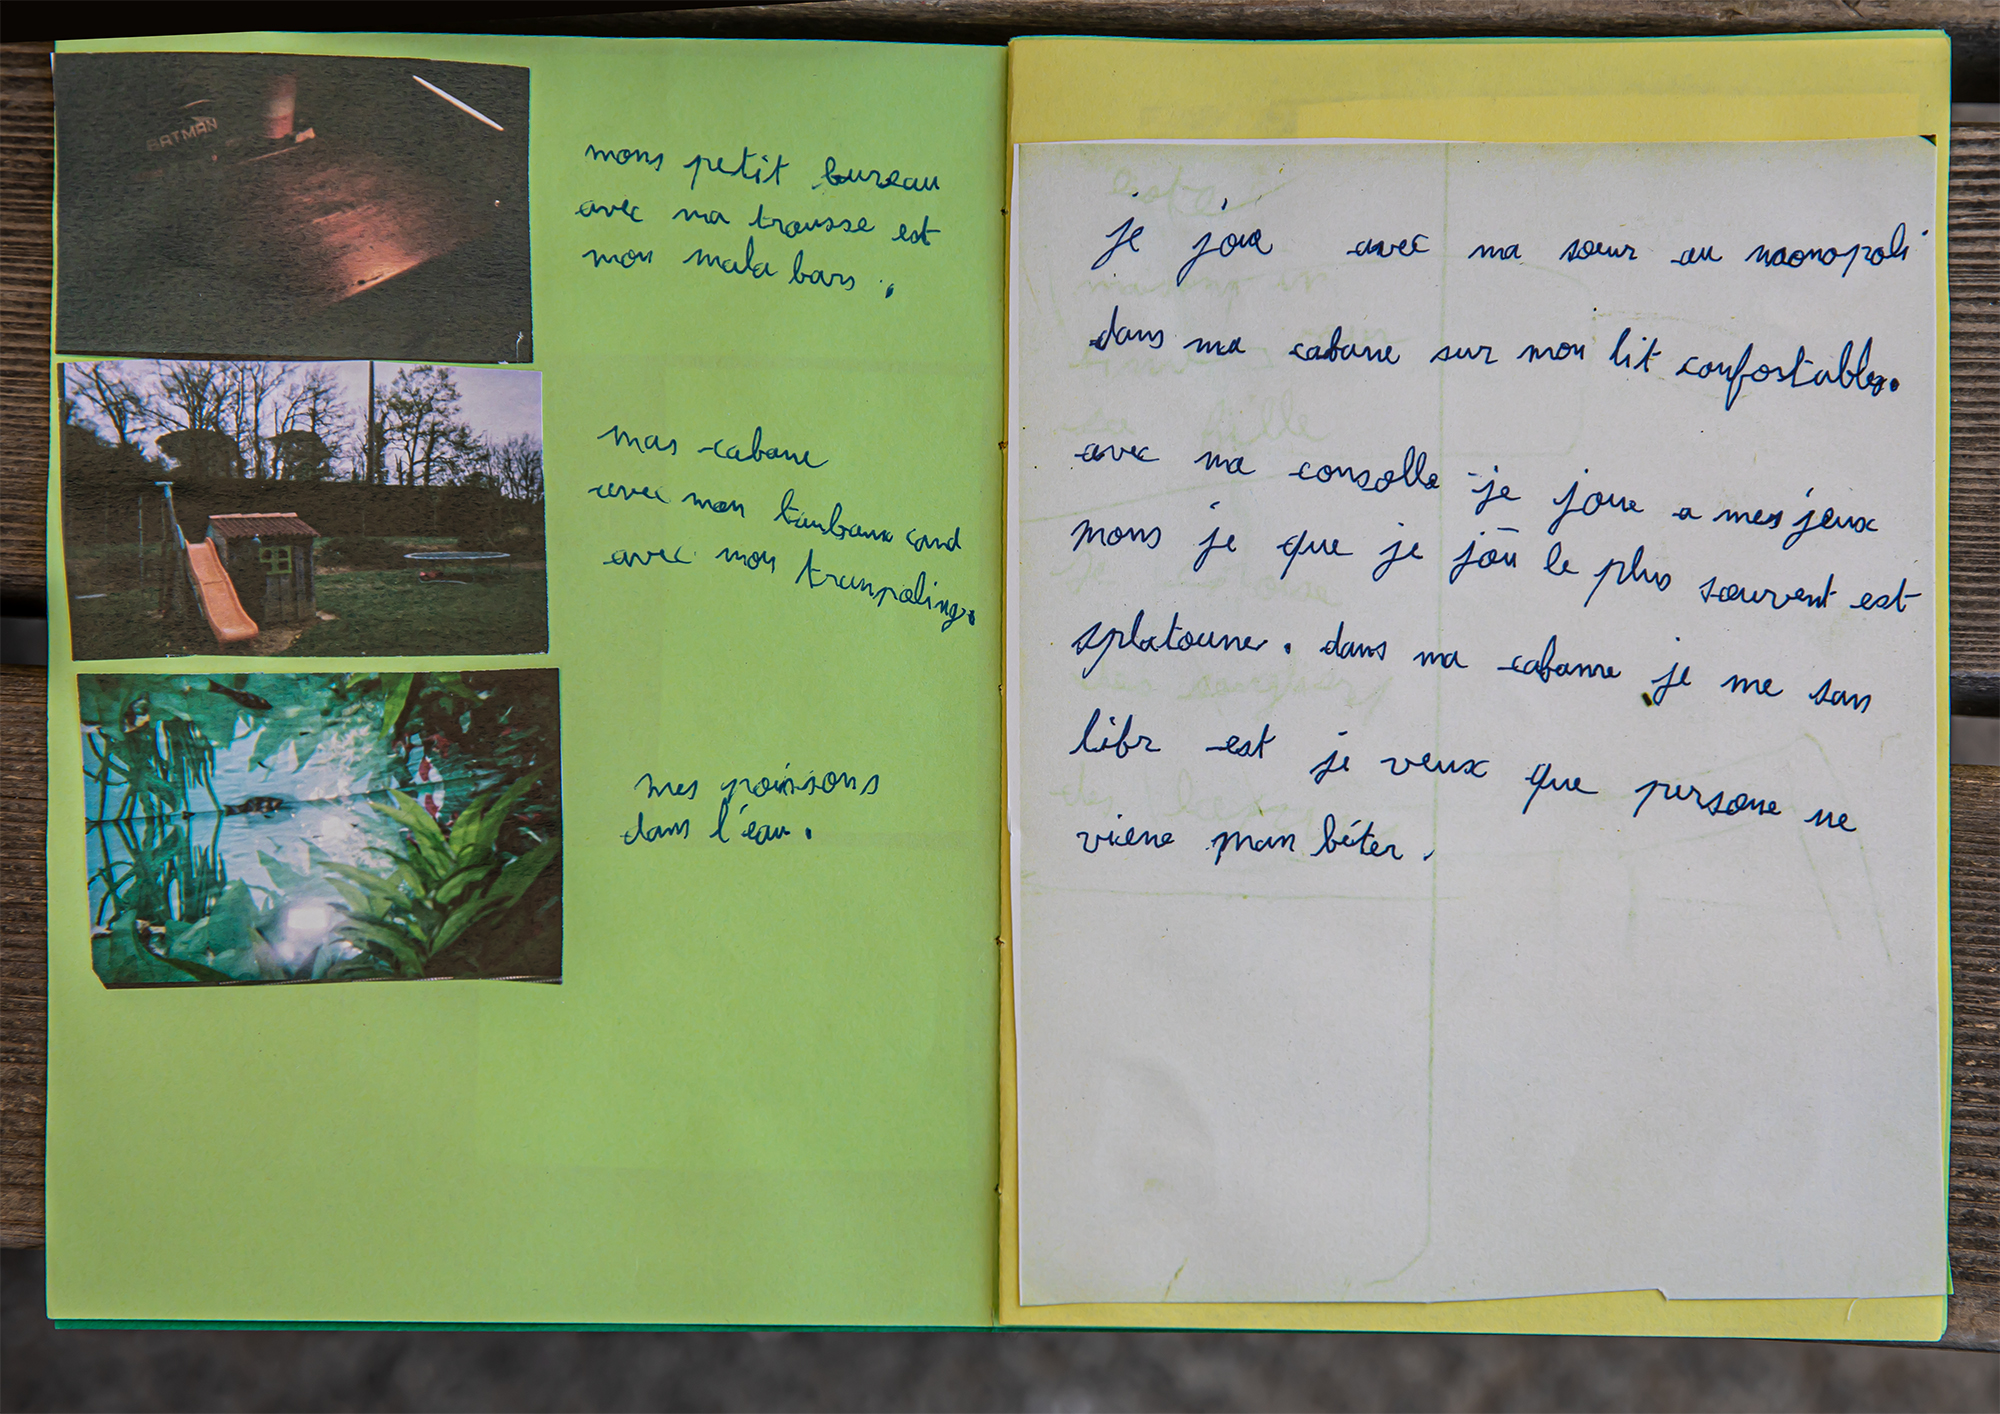 BATMAN
mons petit bureau
avec ma trousse est
mon mala bars.
mas cabane
avec mon
avec mon trampoling.
mes poissons
dans l'éau.
je joue avec ma sœur au monopoli
dans ma cabane sur mon lit confortable.
avec ma consolle je joue a mes jeux
mons je que je jou le plus souvent est
splatoune. dans ma cabanne je me san
libr est je veux que persone ne
viene man béter.